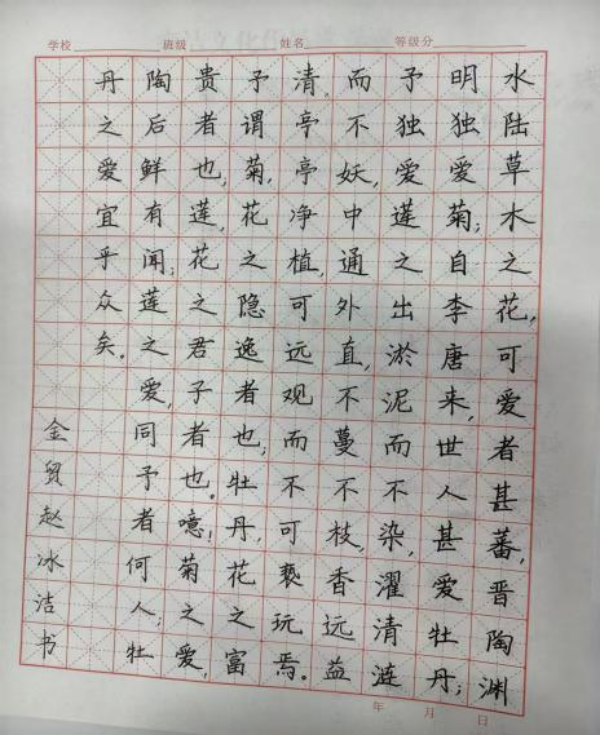 学校 班级 姓名 等级分
水陆草木之花,可爱者甚蕃,晋陶渊
明独爱菊;自李唐来,世人甚爱牡丹;
予独爱莲之出淤泥而不染,濯清涟
而不妖,中通外直,不蔓不枝,香远益
清,亭亭净植,可远观而不可亵玩焉。
予谓菊,花之隐逸者也;牡丹,花之富
贵者也;莲,花之君子者也。噫!菊之爱,
陶后鲜有闻;莲之爱,同予者何人;牡
丹之爱宜乎众矣。
金贸赵冰洁书
年 月 日